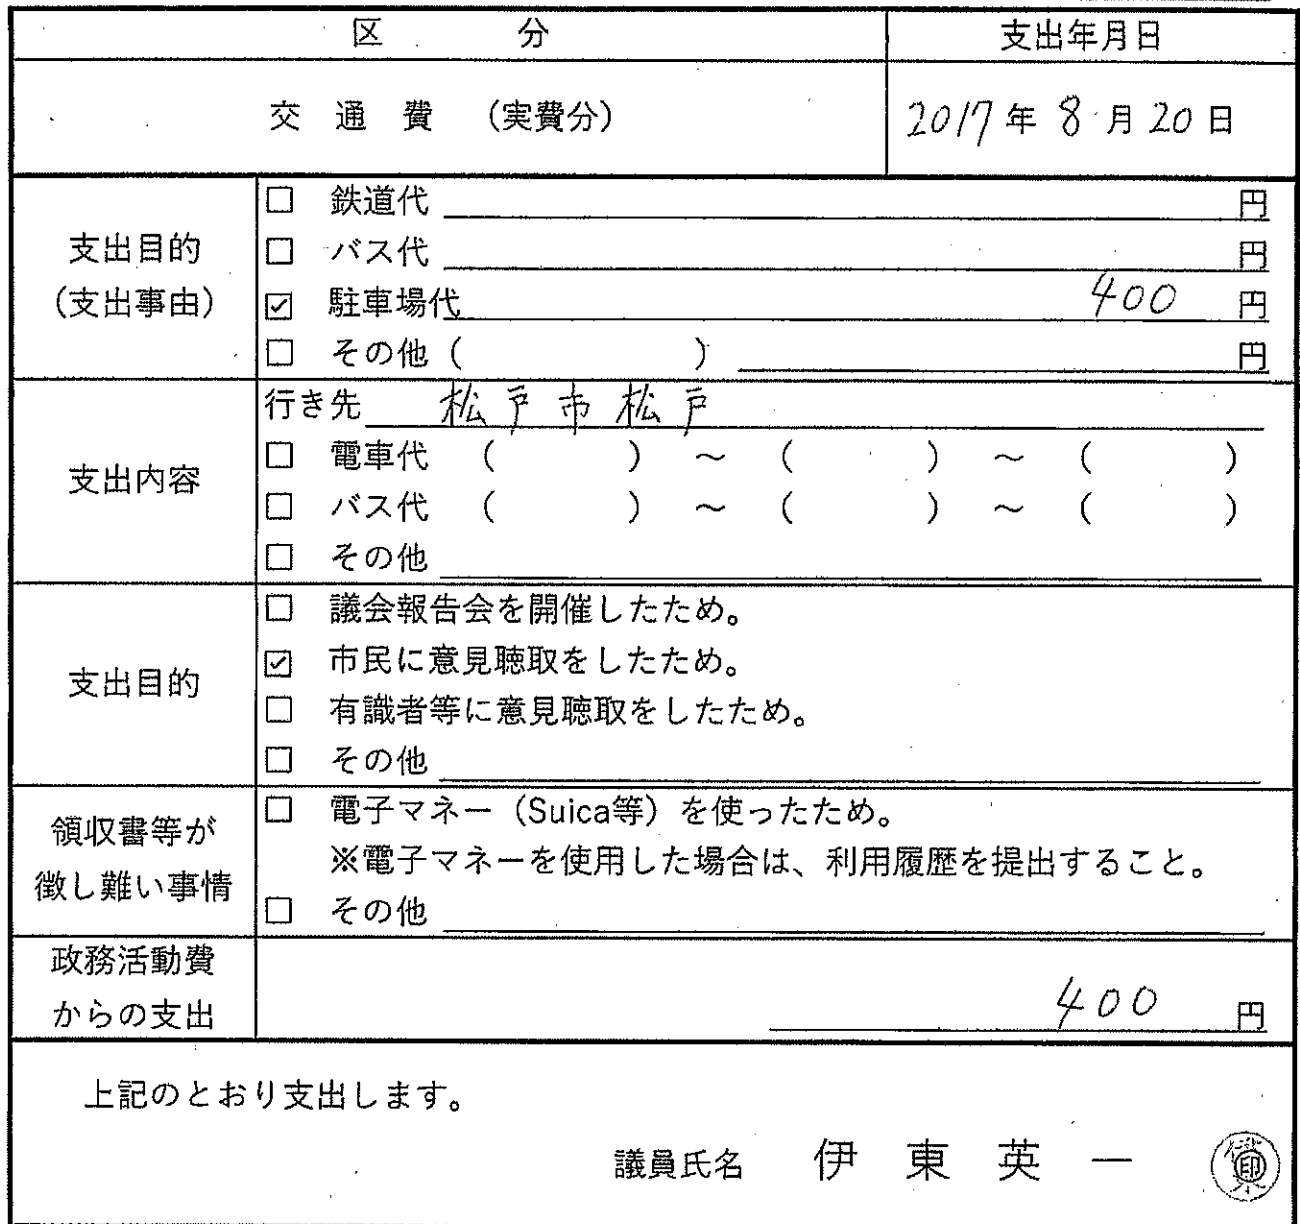 区 分 支出年月日
交 通 費 （実費分） 2017年 8月 20日
支出目的
（支出事由）
□ 鉄道代 円
□ バス代 円
☑ 駐車場代 400 円
□ その他（ ） 円
支出内容
行き先 松戸市松戸
□ 電車代 （ ） ～ （ ） ～ （ ）
□ バス代 （ ） ～ （ ） ～ （ ）
□ その他
支出目的
□ 議会報告会を開催したため。
☑ 市民に意見聴取をしたため。
□ 有識者等に意見聴取をしたため。
□ その他
領収書等が
徴し難い事情
□ 電子マネー（Suica等）を使ったため。
※電子マネーを使用した場合は、利用履歴を提出すること。
□ その他
政務活動費
からの支出
400 円
上記のとおり支出します。
議員氏名 伊 東 英 一 印